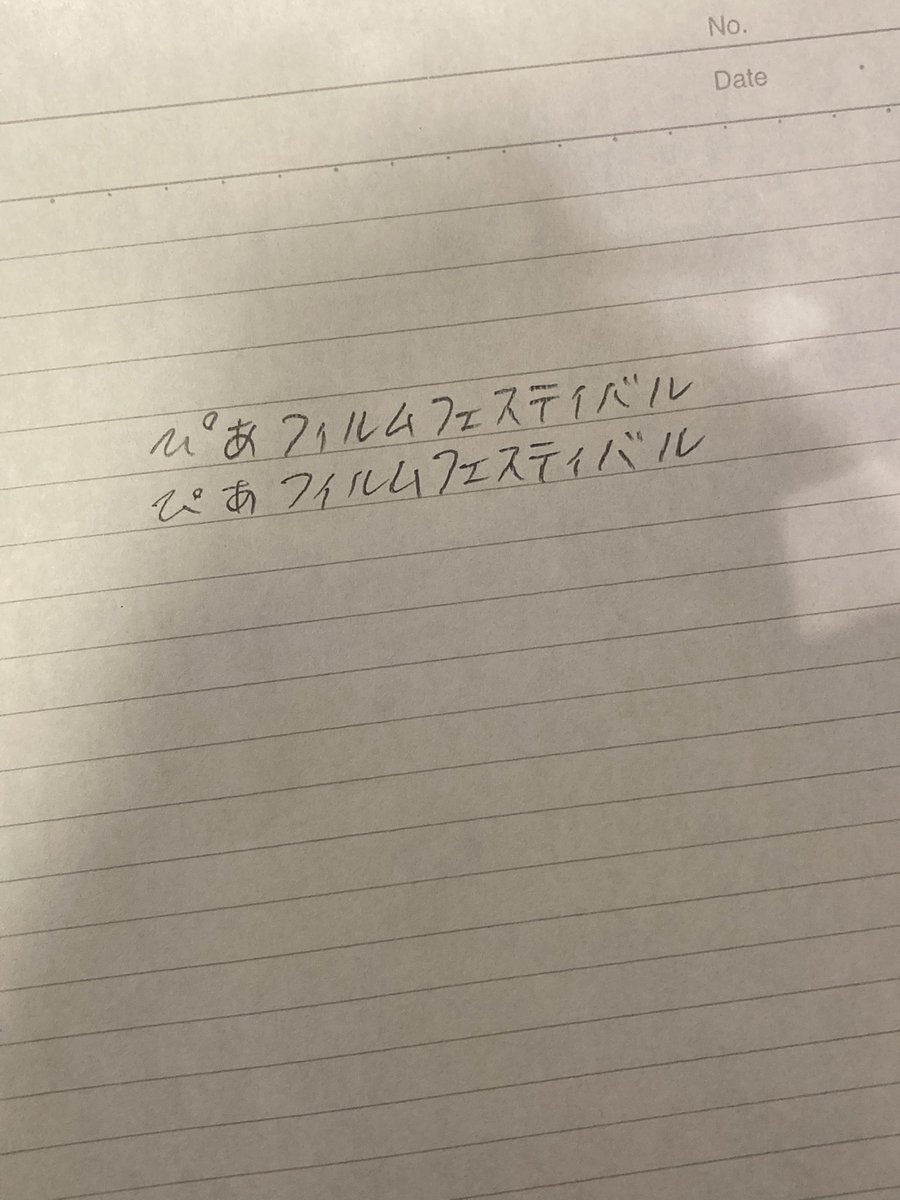 No.
Date
ぴあ フィルムフェスティバル
ぴあ フィルムフェスティバル